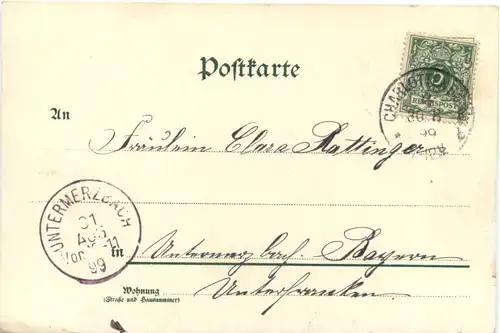 Postkarte
CHARLOTTEN
99
REICHSPOST
An
Fräulein Clara Rattinger
UNTERMERZBACH
31
AUG
Vor. 11
99
in Untermerzbach. Bayern
Wohnung
(Straße und Hausnummer)
Unterfranken